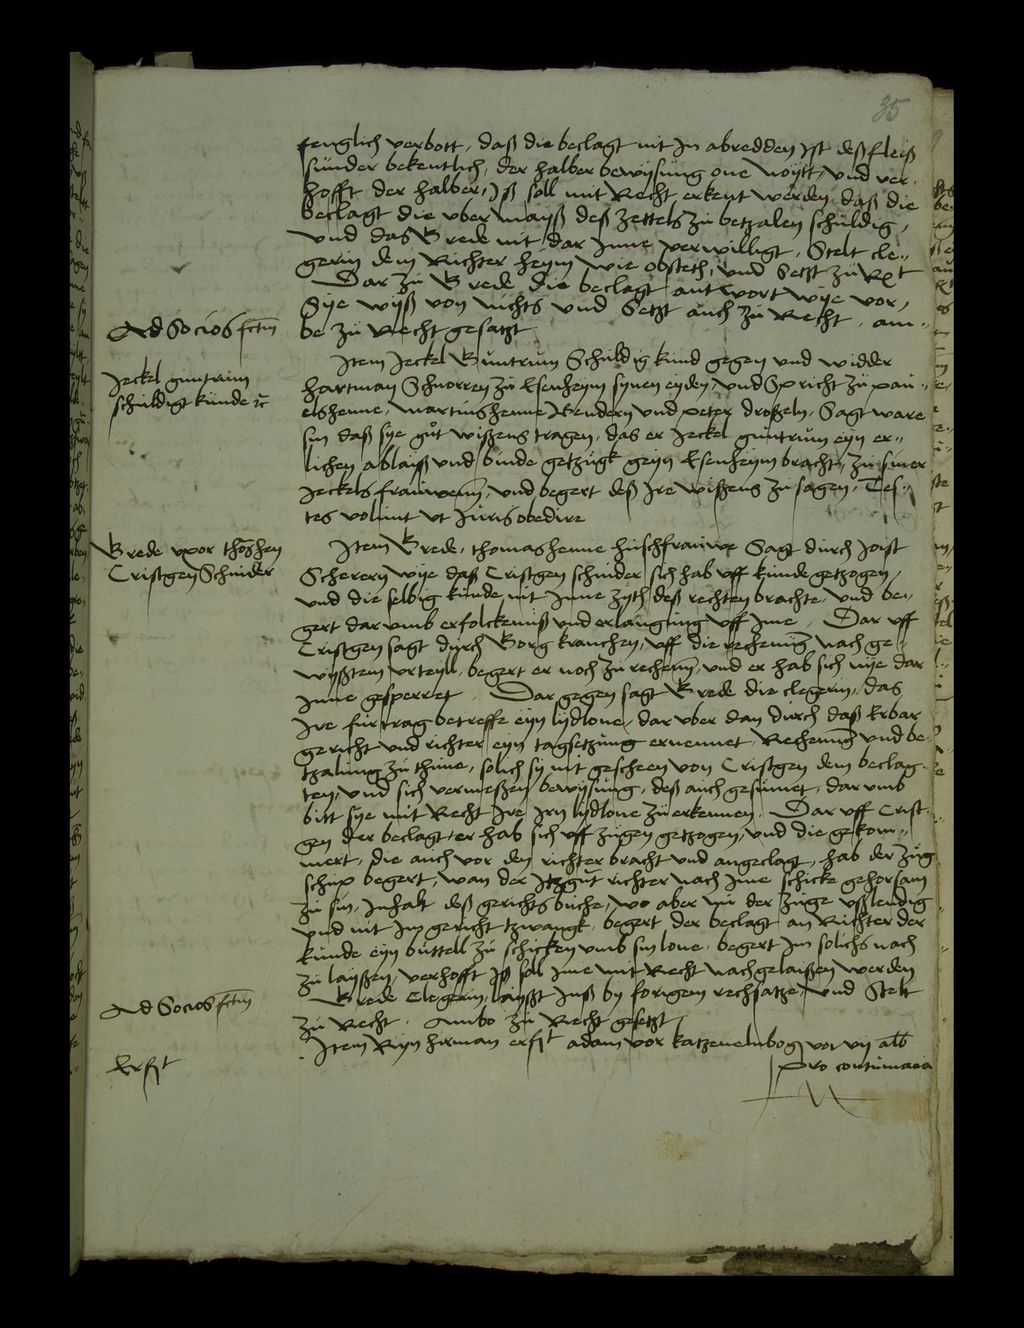 35
fenglich verbott, daß die beclagt nit in abredden ist deß fleiß
sunder bekentlich, der halber bewysung one noytt, und ver-
hofft der halber, Iß soll mit Recht erkent werden daß die
beclagt die uber mayß deß zettels zu betzalen schuldig,
und das Brede nit dar Inne verwilligt, Stelt cle-
gerin dem Richter heym wie obsteth, und Setzt zu Rext
Dar zu Brede die beclagt antwort wye vor,
Sye wyß von nichts und Setzt auch zu Recht, am-
Ad Socios fctm
be zu Recht gesatzt
Item Jeckel Guntrum Schuldig kund gegen und widder
Jeckel guntrum
schuldigt kunde
hartman Schnorren zu Esenheym synen eyden, und Spricht zu pau-
elshenne, martinshenne Bendern und peter droßeln, Sagt ware
sin daß sye gut wißens tragen, das er Jeckel guntrum eyn er-
lichen ablaiß und bunde getzugk geyn Esenheym bracht, zu siner
Jeckels frauwenn, und begert deß Ire wißens zu sagen, Tes-
tes volunt ut Juris obedire
Brede uxor thoßhen
Cristgen Schnider
Item Brede, thomashenne hußfrauwe Sagt durch Joist
Scherern wye daß Cristgen schnider sich hab uff kunde getzogen,
und die selbig kunde nit Inne zyth deß rechten brachte, und be-
gert dar umb erfolckeniß und erlangung uff Ine, Dar uff
Cristgen sagt durch Borg kranchen, uff die rechenung nach ge-
wyßtem urteyll, begert er noch zu rechenn, und er hab sich nye dar
Inne gesperret. Dar gegen sagt Brede die clegerin, das
Ire furtrag betreffe eyn lydlone, dar uber dan durch daß Erbar
gericht und richter eyn tagsetzung ernennet, Rechenung und be-
tzalung zu thune, solich sy nit gescheen von Cristgen dem beclag-
ten, und sich vermeßen bewysung, deß auch gesumet, dar umb
bitt sye mit Recht Ire Irn lydlone zu erkennen. Dar uff Crist-
gen der beclagt, er hab sich uff zugen getzogen, und die gekom-
mert, die auch vor den richter bracht und angeclagt, hab der zug
schup begert, wan der Itzgut richter nach Ime schicke gehorsam
zu sin, Inhalt deß gerichts buche, wo aber nu der zuge ußlendig
und nit Im gericht tzwangk, begert der beclagt an Richter der
kunde eyn buttell zu schicken umb sin lone, begert Im solichs nach
zu layßen, verhofft Iß soll Ime mit Recht nachgelaißen werden
Brede Clegerin, layßt Inß by forigem rechsatze, und Stelt
Ad Socios fctm
zu Recht. Ambo zu Recht gesetzt
Erfˡt
Item Ryn hirman erfˡt adam vor katzenelnbog vor vij alb
pro contumacia